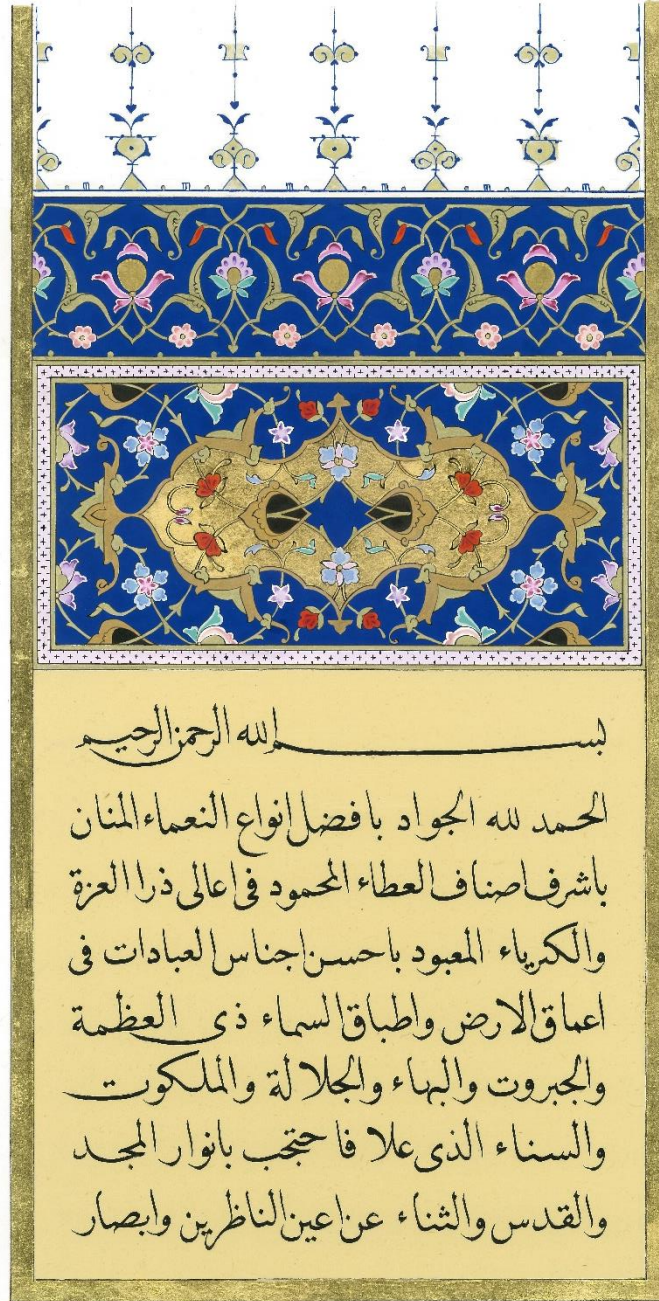 بسم الله الرحمن الرحيم
الحمد لله الجواد بافضل انواع النعماء المنان
باشرف اصناف العطاء المحمود فى اعالى ذرا العزة
والكبرياء المعبود باحسن اجناس العبادات فى
اعماق الارض واطباق السماء ذى العظمة
والجبروت والبهاء والجلالة والملكوت
والسناء الذى علا فاحتجب بانوار المجد
والقدس والثناء عن اعين الناظرين وابصار